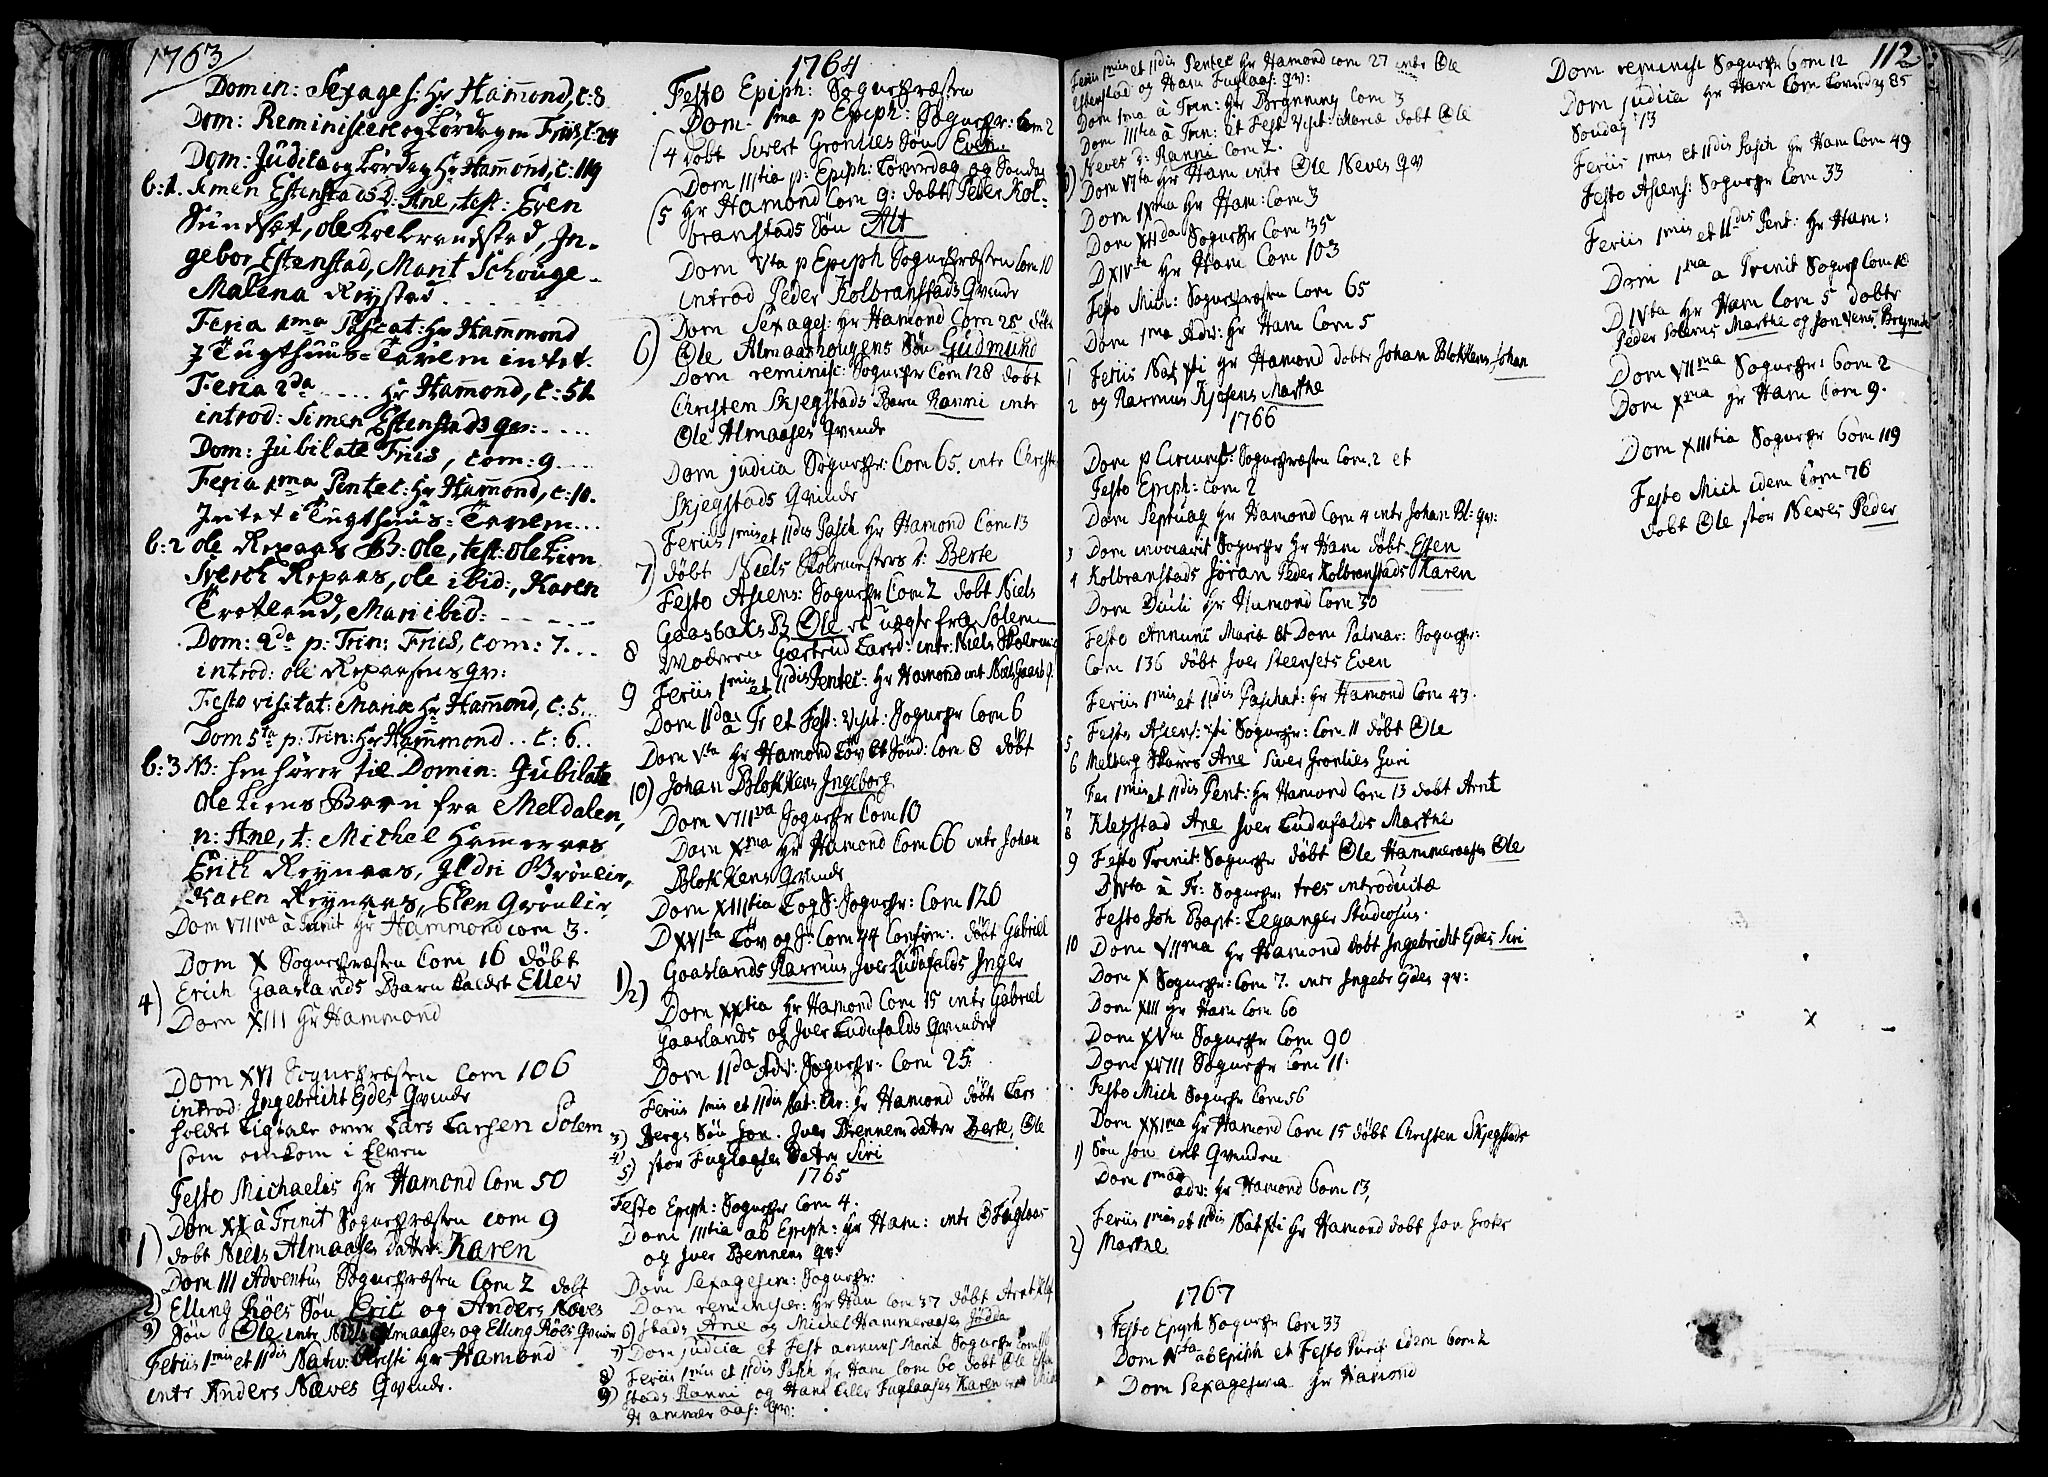 1763
Domin: Sexages: Hr Hammond, C: 8
Dom: Reminiscere og Lördagen Friis, C: 24
Dom: Judica og Lördag Hr Hammond, C: 119
b: 1. Simen Estenstads D: Ane, test: Even
Sundset, Ole Kolbrandstad, In-
gebor Estenstad, Marit Schouge-
Malena Röystad
Feria 1ma Pascat: Hr Hammond
J Tugthuus-Tavlen intet.
Feria 2da ..... Hr Hammond, C: 51
introd: Simen Estenstads qv: ....
Dom: Jubilate Friis, Com: 9 ....
Feria 1ma Pentec: Hr Hammond, C: 10.
Intet i Tugthuus-Tavlen...
b: 2 Ole Repaas B: Ole, test: Ole Lien
Sverch Repaas, Ole ibid:, Karen
Trotland, Mari ibid:
Dom: 2da p: Trin: Friis, Com: 7...
introd: Ole Repaasens qv:
Festo visitat: Mariæ Hr Hammond, C: 5..
Dom 5ta p: Trin: Hr Hammond .. C: 6..
b: 3 NB: hen hörer til Domin: Jubilate
Ole Liens Barn fra Meldalen,
n: Ane, t: Michel Hammeraas
Erich Röynaas, Ildri Brönlie,
Karen Röynaas, Elen Grönlie
Dom VIIIva à Trinit Hr Hammond com 3.
Dom X Sognepræsten Com 16 döbt
4) Erich Gaaslands Barn kaldet Ellev
Dom XIII Hr Hammond
Dom XVI Sognepræsten Com 106
introd: Ingebricht Edes Qvinde
holdet Ligtale over Lars Larsen Solem
som omkom i Elven
Festo Michaelis Hr Hamond Com 50
Dom XX à Trinit Sognepræsten Com 9
1) döbt Niels Almaases datter Karen
Dom III Adventus Sognepræsten Com 2 döbt
2) Elling Röes Sön Eric og Anders Næves
3) Sön Ole intr Niels Almaases og Elling Röes Qvinde
Feriis 1mis et IIdis Nativ: Christi Hr Hamond
intr Anders Næves Qvinde.
1764
Festo Epiph: Sognepræsten
Dom 1ma p Epiph: Sognepr: Com 2
4 döbt Sivert Grönlies Sön Even
Dom IIItia p: Epiph: Löverdag og Sondag
5 Hr Hamond Com 9: döbt Peder Kol-
branstads Sön Alt
Dom Vta p Epiph Sognepræsten Com 10
introd Peder Kolbranstads Qvinde
Dom Sexages: Hr Hamond Com 25 döbt
6) Ole Almaashougens Sön Gudmund
Dom reminisc: Sognepr Com 128 döbt
Christen Skjegstads Barn Ranni intr
Ole Almaases Qvinde
Dom judica Sognepr: Com 65. intr Christe
Skjegstads Qvinde
Feriis 1mis et IIdis Pasch Hr Hamond Com 13
7) döbt Niels Skolemesters d: Berte
Festo Asiens: Sognepr Com 2 döbt Niels
Gaasbaks B Ole et uægte fra Solem
8 Moderen Gjertrud Larsd: intr: Niels Skolemes
9 Feriis 1mis et IIdis Pentec: Hr Hamond intr Niels Gaasb q.
Dom IIda à Tr et Fest: visit: Sognepr Com 6
Dom Vta Hr Hamond Löv et Sönd: Com 8 döbt
10) Johan Blokkens Ingeborg
Dom VIIIva Sognepr Com 10
Dom Xma Hr Hamond Com 66 intr Johan
Blokkens Qvinde
Dom XIIItia L og S: Sognepr: Com 120
D XVIta Löv og S: Com 44 Confirm: döbt Gabriel
1) Gaaslands Rasmus, Iver Ludufalds Inger
2) Dom XXtia Hr Hamond Com 15 intr Gabriel
Gaaslands og Iver Ludufalds Qvinder
Dom IIda Adv: Sognepr: Com 25
Feriis 1mis et IIdis Nat: Chr: Hr Hamond döbt Lars
3) Bergs Sön Jon. Iver Brennens datter Berte, Ole
4)
5) stor Fuglaases datter Siri
1765
Festo Epiph: Sognepr Com 4.
Dom IIItia ab Epiph: Hr Ham: intr O Fuglaas
og Iver Bennens qv:
Dom Sexagesim: Sognepr:
Dom reminisc: Hr Ham Com 37 döbt Arnt Klef
6) stads Ane og Michel Hammeraases
7) Dom judica et Fest annunc Mariæ Sognepr Com
8 Feriis 1mis et IIdis Pasch Hr Ham Com 60 döbt Ole Esten
9) stads Ranni og Hans Lille Fuglaases Karen
Hammer aas: Qv:
Feriis 1mis et IIdis Pentec Hr Hamond com 27 intr Ole
Estenstad og Hans Fuglaas: qv:
Dom 1ma à Trin: Hr Brönning Com 3
Dom IIItia à Trin: et Fest Visit: Mariæ döbt Ole
Næves d: Ranni Com 2.
Dom VIta Hr Ham intr Ole Neves qv
Dom IXma Hr Ham: Com 3
Dom XIIda Sognepr Com 35
D XIVta Hr Ham Com 103
Festo Mich: Sognepræsten Com 65
Dom 1ma Adv: Hr Ham Com 5
1 Feriis Nat Xti Hr Hamond döbte Johan Blokkens Johan
2 og Rasmus Kjösens Marthe
1766
Dom p Circumc: Sognepræsten Com. 2 et
Festo Epiph: Com 2
Dom Septuag Hr Hamond Com 4 intr Johan Bl: qv:
3 Dom invocavit Sognepr Hr Ham döbt Esten
4 Kolbranstads Jöran Peder Kolbranstads Karen
Dom Oculi Hr Hamond Com 30
Festo Annunt Maria et Dom Palmar: Sognepr:
Com 136 döbt Iver Steensets Even
Feriis 1mis et IIdis Paschat: Hr Hamond Com 43.
5 Festo Asiens: Xti Sognepr: Com 11 döbt Ole
6 Melberg Skaars Ane Siver Grönlies Guri
Fer 1mis et IIdis Pent: Hr Hamond Com 13 döbt Arnt
7 Klefstad Ane Iver Ludufalds Marthe
8
9 Festo Trinit: Sognepr döbt Ole Hammeraases Ole
D IVta à Tr: Sognepr: tres introductæ
Festo Joh Bapt: Leganger Studiosus.
10 Dom VIIma Hr Hamond döbt Ingebricht Edes Siri
Dom X Sognepr: Com 7. intr Ingebr Edes qv:
Dom XIII Hr Ham Com 60
Dom XVta Sognepr Com 90
Dom XVIII Sognepr Com 11:
Festo Mich Sognepr Com 56
Dom XXIma Hr Hamond Com 15 döbt Christen Skjegstads
1) Sön Jon int Qvinden
Dom 1ma
adv: Hr Hamond Com 13,
Feriis 1mis et IIdis Nat Xti Hr Hamond döbt Jon Grotes
2) Marthe
1767
Festo Epiph Sognepr Com 33
Dom IVta ab Epiph et Festo Purif: idem Com 2
Dom Sexagesima Hr Hamond
112
Dom reminisc Sognepr Com 12
Dom judica Hr Ham Com Löverdag 85
Söndag 13
Feriis 1mis et IIdis Pasch Hr Ham Com 49
Festo Asiens: Sognepr Com 33
Feriis 1mis et IIdis Pent: Hr Ham:
Dom 1ma a Trinit Sognepr Com 18
D IVta Hr Ham Com 5 döbte
Peder Solems Marthe og Jon Vens: Brynild
Dom VIIma Sognepr: Com 2
Dom Xma Hr Ham Com 9.
Dom XIIItia Sognepr Com 119
Festo Mich idem Com 76
döbt Ole stor Neves Peder